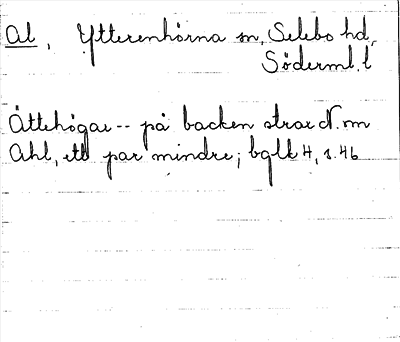 Al, Ytterenhörna sn, Selebo hd,
Söderml. l
Ättehögar -- på backen strax N. om
Ahl, ett par mindre; bglt 4, s. 46